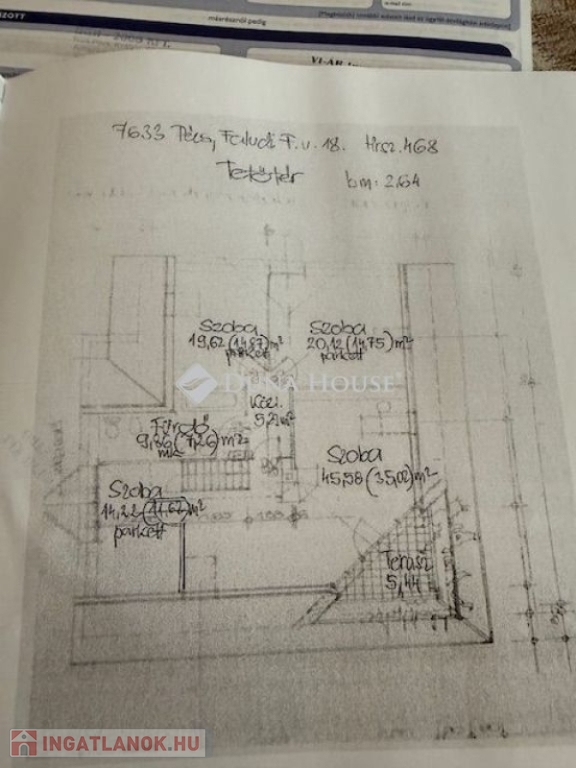 7633 Pécs, Faludi F. u. 18. Hrsz. 468
Tetőtér bm: 2,64
Szoba
19,62 (14,87) m²
parkett
Szoba
20,12 (14,75) m²
parkett
DUNA HOUSE
Közl.
5,21 m²
Fürdő
9,86 (7,26) m²
mk
Szoba
45,58 (35,02) m²
Szoba
14,22 (11,62) m²
parkett
Terasz
5,44
INGATLANOK.HU